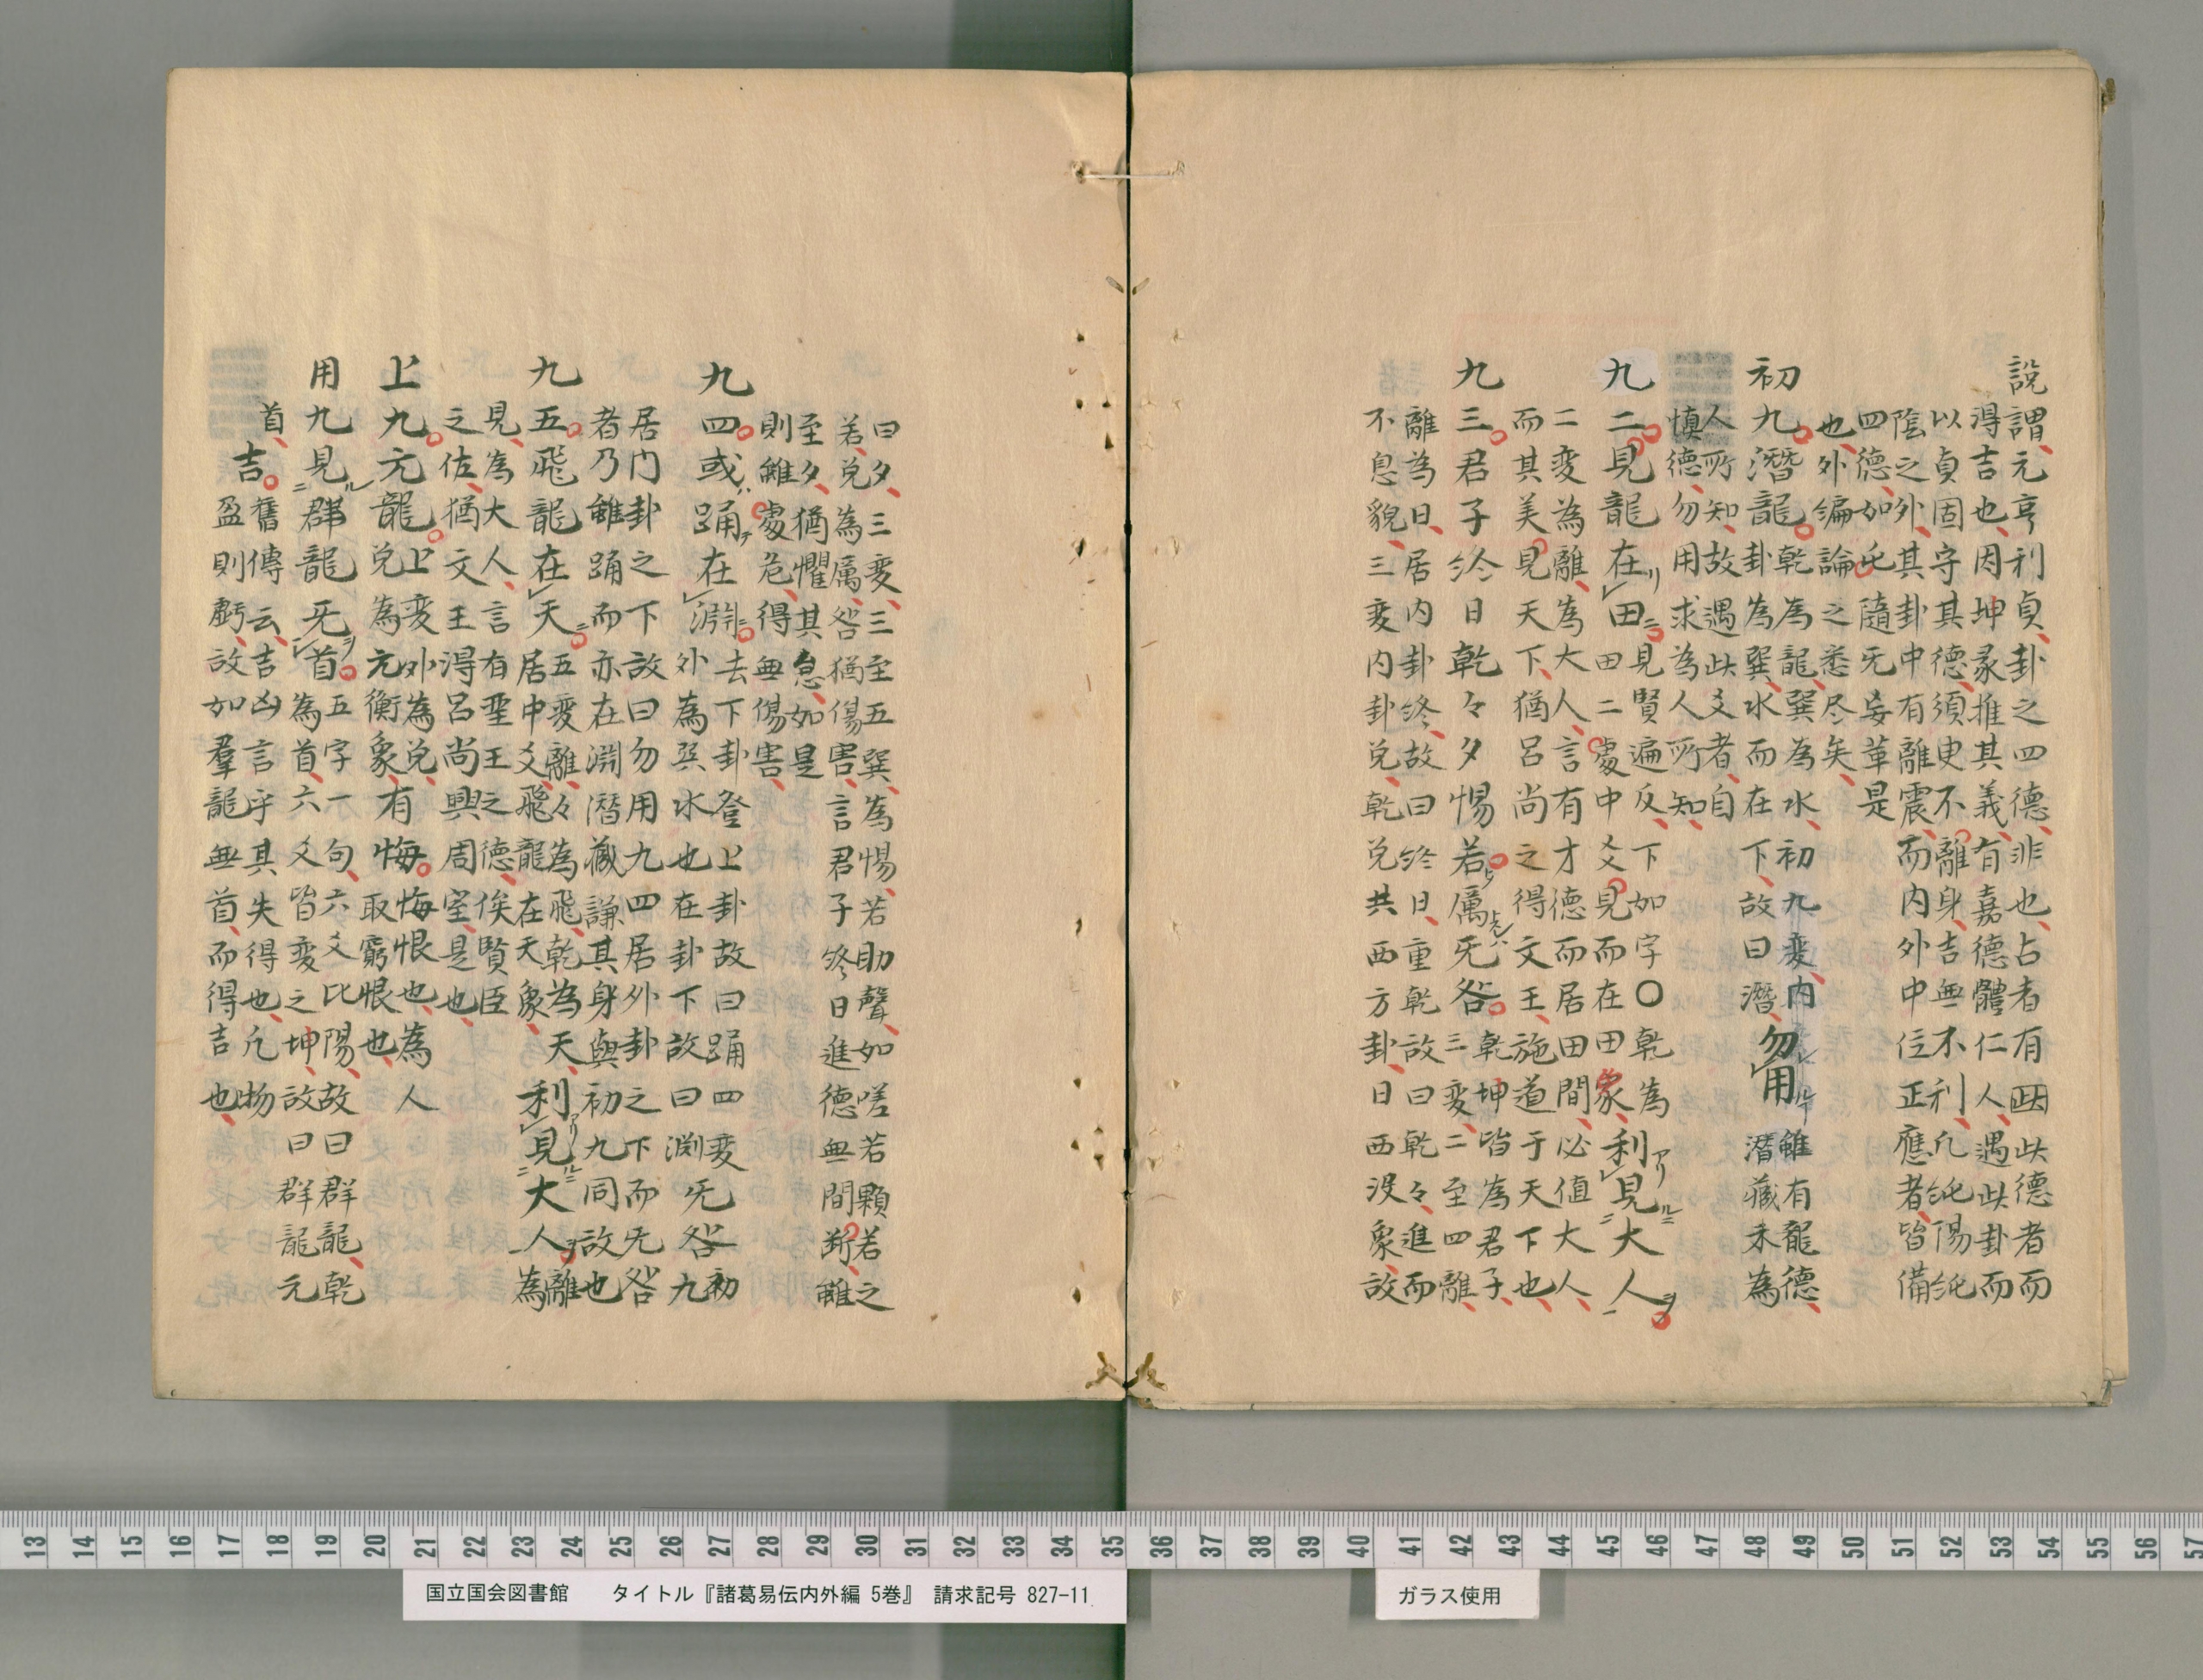 説謂元亨利貞卦之四德非也占者有此德者而
得吉也因坤彖推其義有嘉德體仁人遇此卦而
以貞固守其德須臾不離身吉無不利凢純陽純
陰之外其卦中有離震而内外中位正應者皆備
四德如此隨无妄革是
也外編論之悉尽矣
初九潛龍乾為龍巽為水初九変内
卦為巽水而在下故曰潛勿用雖有龍德
潛藏未為
人所知故遇此爻者自
慎德勿用求為人所知
九二見龍在田見賢遍反下如字〇乾為
田二處中爻見而在田象利見大人
二変為離為大人言有才德而居田間必値大人
而其美見天下猶呂尚之得文王施道于天下也
九三君子終日乾々夕惕若厲无咎乾坤皆為君子
三変二至四離
離為日居内卦終故曰終日重乾故曰乾々進而
不息貌三変内卦兌乾兌共西方卦日西没象故
曰夕三変三至五巽為惕若助聲如嗟若顆若之
若兌為厲咎猶傷害言君子終日進德無間断雖
至夕猶懼其怠如是
則雖處危得無傷害
九四或踊在淵去下卦登上卦故曰踊四変
外為巽水也在卦下故曰淵无咎初
九
居内卦之下故曰勿用九四居外卦之下而无咎
者乃雖踊而亦在淵潛藏謙其身與初九同故也
九五飛龍在天五変離々為飛乾為天
居中爻飛龍在天象利見大人離
為
見為大人言有聖王之德俟賢臣
之佐猶文王得呂尚興周室是也
上九亢龍上変外為兌
兌為亢衡象有悔悔恨也為人
取窮恨也
用九見群龍无首五字一句六爻比陽故曰群龍乾
為首六爻皆変之坤故曰群龍元
首吉舊傳云吉凶言乎其失得也凢物
盈則虧故如羣龍無首而得吉也
国立国会図書館 タイトル『諸葛易伝内外編 5巻』 請求記号 827-11
ガラス使用
13 14 15 16 17 18 19 20 21 22 23 24 25 26 27 28 29 30 31 32 33 34 35 36 37 38 39 40 41 42 43 44 45 46 47 48 49 50 51 52 53 54 55 56 57